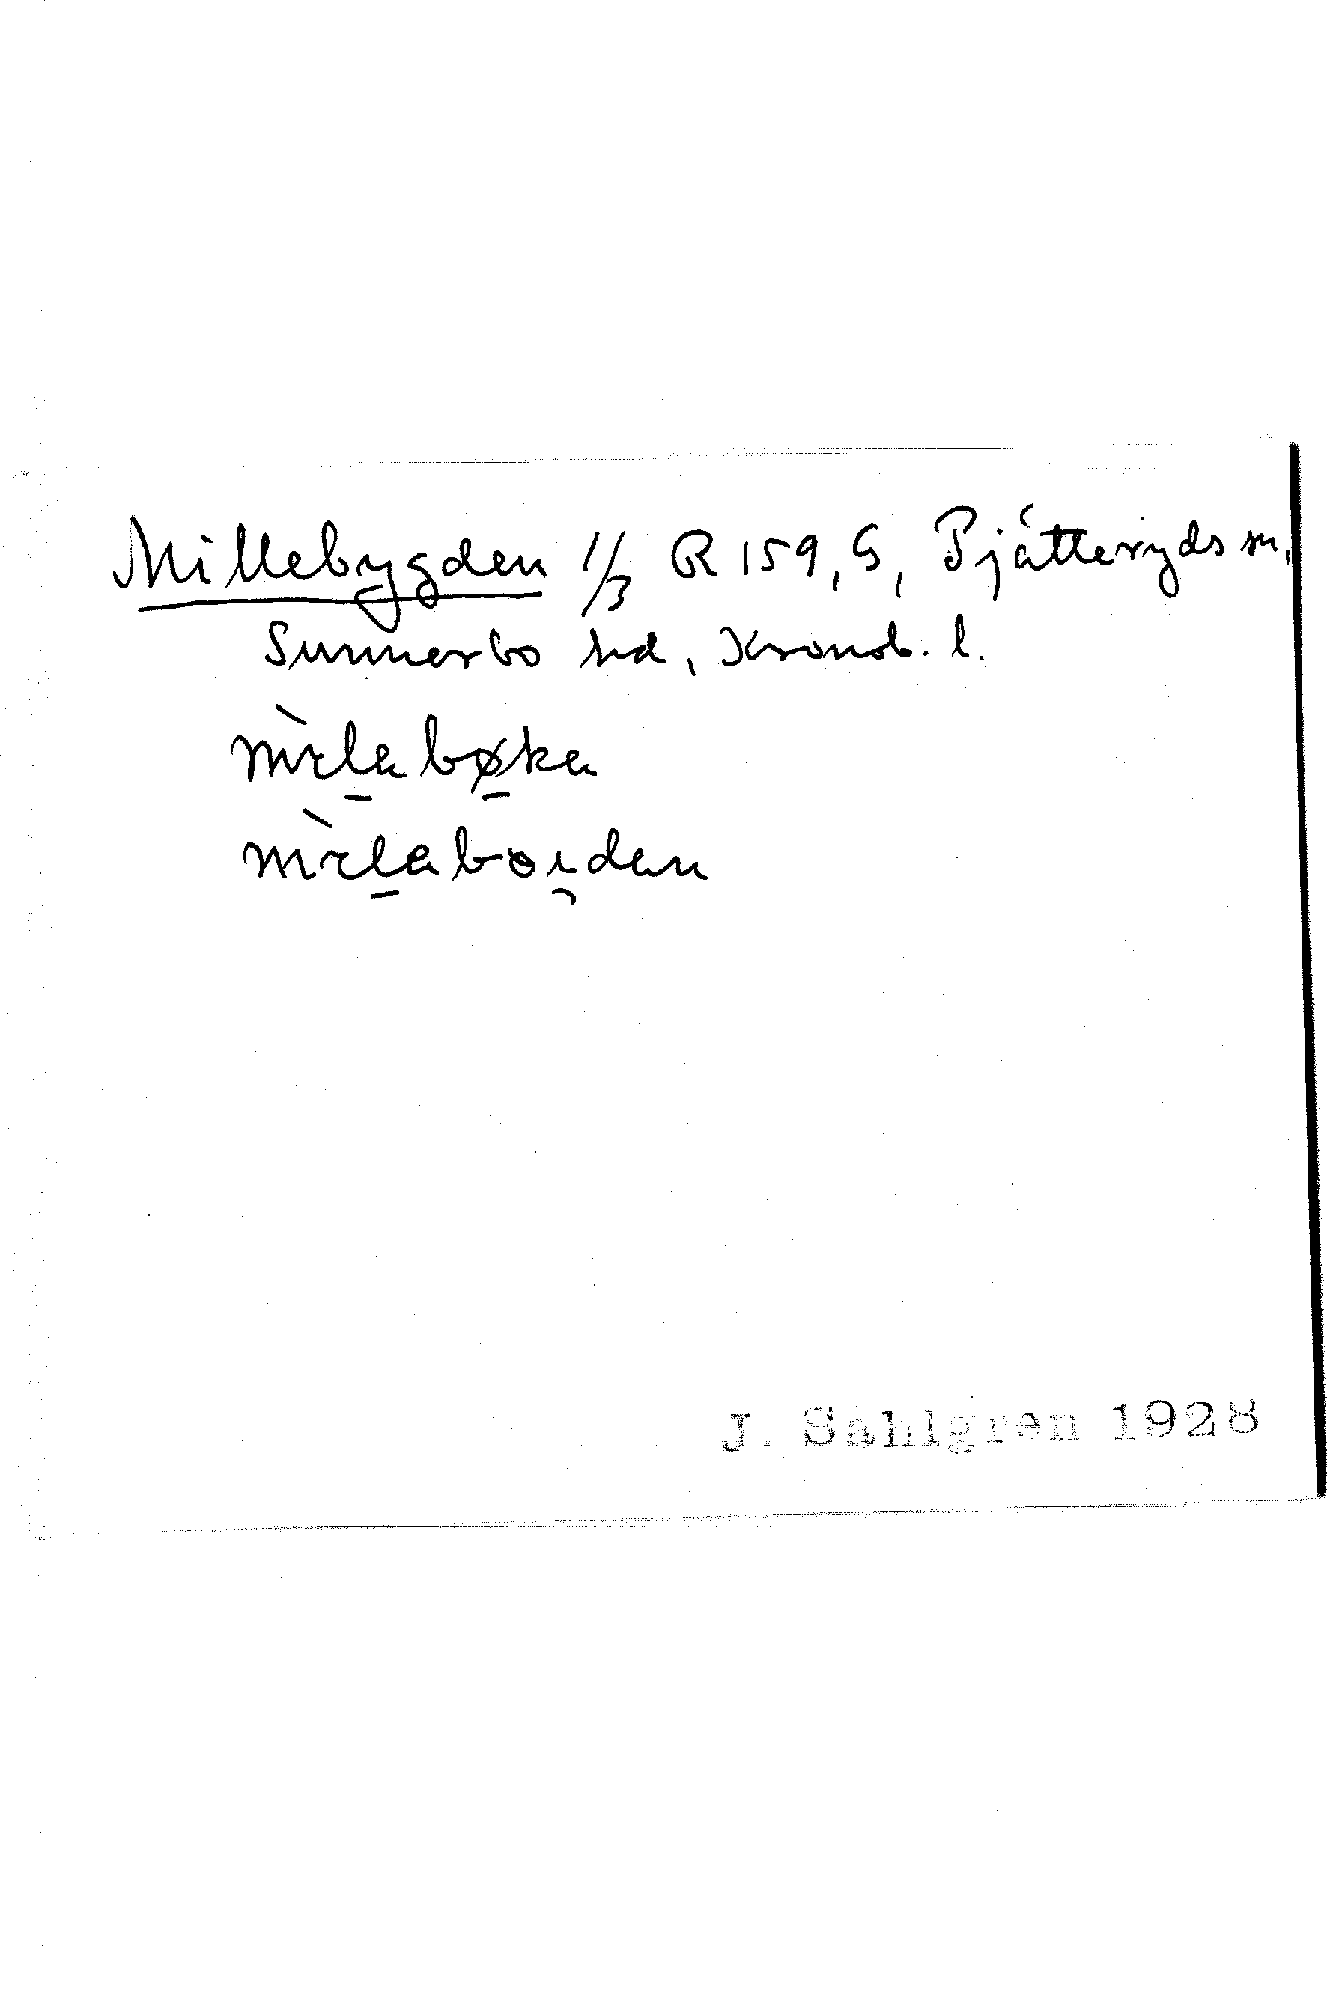 Millebygden 1/3 R 159, G, Pjätteryds sn,
Sunnerbo hd, Kronob. l.
mìl̠a bø̠ka
mìl̠abɵı̯dan
J. Sahlgren 1928